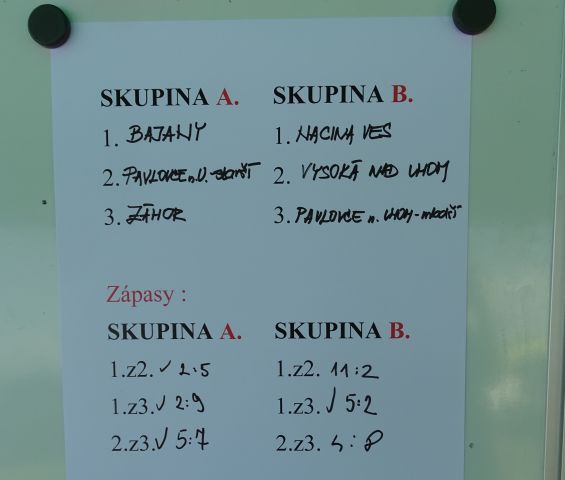 SKUPINA A. SKUPINA B.
1. BAJANY 1. NACINA VES
2. PAVLOVCE n.U. - starší 2. VYSOKÁ NAD UHOM
3. ZÁHOR 3. PAVLOVCE n. UHOM - mladší
Zápasy :
SKUPINA A. SKUPINA B.
1.z2. ✓ 2:5 1.z2. 11:2
1.z3. ✓ 2:9 1.z3. ✓ 5:2
2.z3. ✓ 5:7 2.z3. 4:8